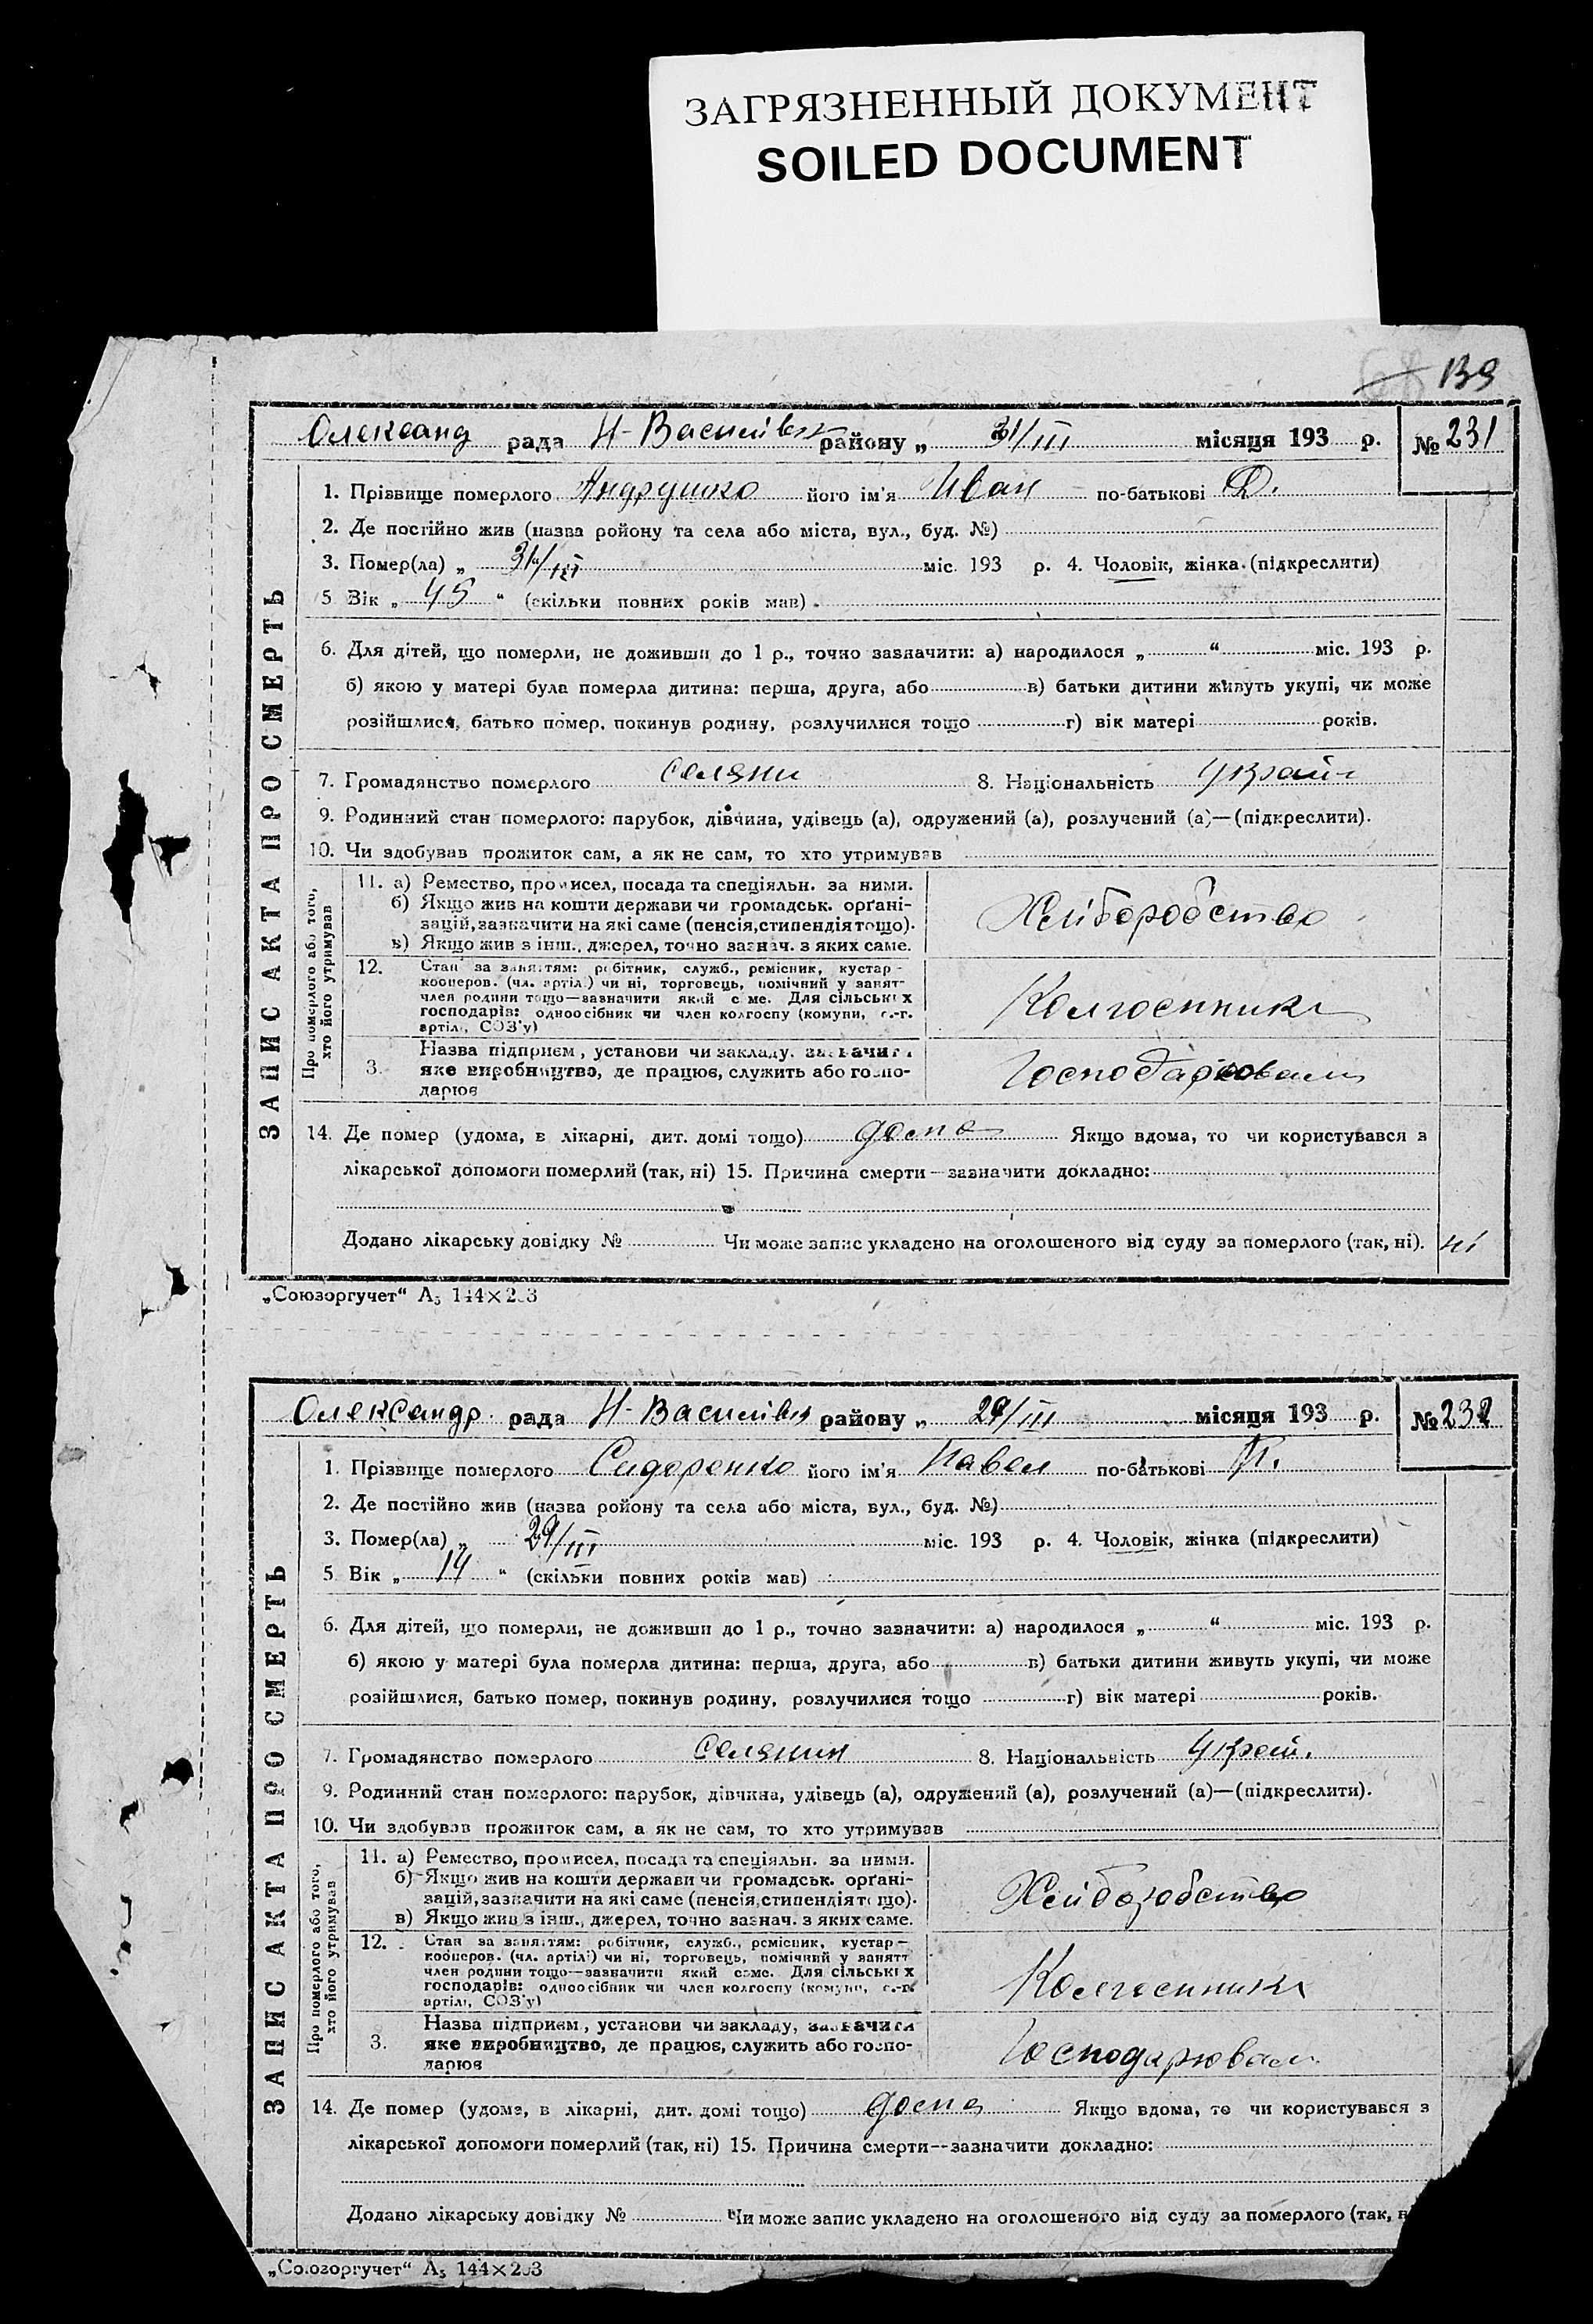 ЗАГРЯЗНЕННЫЙ ДОКУМЕНТ
SOILED DOCUMENT
139
Олександ рада Н-Василівк району „ 31/III місяця 193 р. № 231
1. Прізвище померлого Андрушко його ім'я Иван по-батькові Д.
2. Де постійно жив (назва ройону та села або міста, вул., буд. №)
3. Помер(ла) „ 31/III міс. 193 р. 4. Чоловік, жінка (підкреслити)
5 Вік „ 45 “ (скільки повних років мав)
6. Для дітей, що померли, не доживши до 1 р., точно зазначити: а) народилося „ “ міс. 193 р.
б) якою у матері була померла дитина: перша, друга, або в) батьки дитини живуть укупі, чи може
розійшлися, батько помер, покинув родину, розлучилися тощо г) вік матері років.
7. Громадянство померлого селяни 8. Національність Україн
9. Родинний стан померлого: парубок, дівчина, удівець (а), одружений (а), розлучений (а)—(підкреслити).
10. Чи здобував прожиток сам, а як не сам, то хто утримував
ЗАПИС АКТА ПРО СМЕРТЬ
Про померлого або того, хто його утримував
11. а) Ремество, промисел, посада та спеціяльн. за ними.
б) Якщо жив на кошти держави чи громадськ. орґані-
зацій, зазначити на які саме (пенсія, стипендія тощо).
в) Якщо жив з інш., джерел, точно зазнач. з яких саме.
Хліборобство
12. Стан за заняттям: робітник, служб., ремісник, кустар—
кооперов. (чл. артіл.) чи ні, торговець, помічний у занят-
член родини тощо—зазначити який саме. Для сільських
господарів: одноосібник чи член колгоспу (комуни, с.-г.
артілі, СОЗ'у)
Колгоспник
3. Назва підприєм, установи чи закладу, зазначити
яке виробництво, де працює, служить або госпо-
дарює
Господарював
14. Де помер (удома, в лікарні, дит. домі тощо) дома Якщо вдома, то чи користувався з
лікарської допомоги померлий (так, ні) 15. Причина смерти—зазначити докладно:
Додано лікарську довідку № Чи може запис укладено на оголошеного від суду за померлого (так, ні). ні
„Союзоргучет“ А5 144×203
Олександр. рада Н-Василівк району „ 29/III місяця 193 р. № 232
1. Прізвище померлого Сидоренко його ім'я Павел по-батькові П.
2. Де постійно жив (назва ройону та села або міста, вул., буд. №)
3. Помер(ла) „ 29/III міс. 193 р. 4. Чоловік, жінка (підкреслити)
5 Вік „ 14 “ (скільки повних років мав)
6. Для дітей, що померли, не доживши до 1 р., точно зазначити: а) народилося „ “ міс. 193 р.
б) якою у матері була померла дитина: перша, друга, або в) батьки дитини живуть укупі, чи може
розійшлися, батько помер, покинув родину, розлучилися тощо г) вік матері років.
7. Громадянство померлого селянин 8. Національність Украй.
9. Родинний стан померлого: парубок, дівчина, удівець (а), одружений (а), розлучений (а)—(підкреслити).
10. Чи здобував прожиток сам, а як не сам, то хто утримував
ЗАПИС АКТА ПРО СМЕРТЬ
Про померлого або того, хто його утримував
11. а) Ремество, промисел, посада та спеціяльн. за ними.
б) Якщо жив на кошти держави чи громадськ. орґані-
зацій, зазначити на які саме (пенсія, стипендія тощо).
в) Якщо жив з інш., джерел, точно зазнач. з яких саме.
Хліборобство
12. Стан за заняттям: робітник, служб., ремісник, кустар—
кооперов. (чл. артілі) чи ні, торговець, помічний у занятт
член родини тощо—зазначити який саме. Для сільських
господарів: одноосібник чи член колгоспу (комуни, с.-г.
артілі, СОЗ'у)
Колгоспник
3. Назва підприєм, установи чи закладу, зазначити
яке виробництво, де працює, служить або госпо-
дарює
Господарював
14. Де помер (удома, в лікарні, дит. домі тощо) дома Якщо вдома, то чи користувався з
лікарської допомоги померлий (так, ні) 15. Причина смерти—зазначити докладно:
Додано лікарську довідку № Чи може запис укладено на оголошеного від суду за померлого (так, н
„Союзоргучет“ А5 144×203